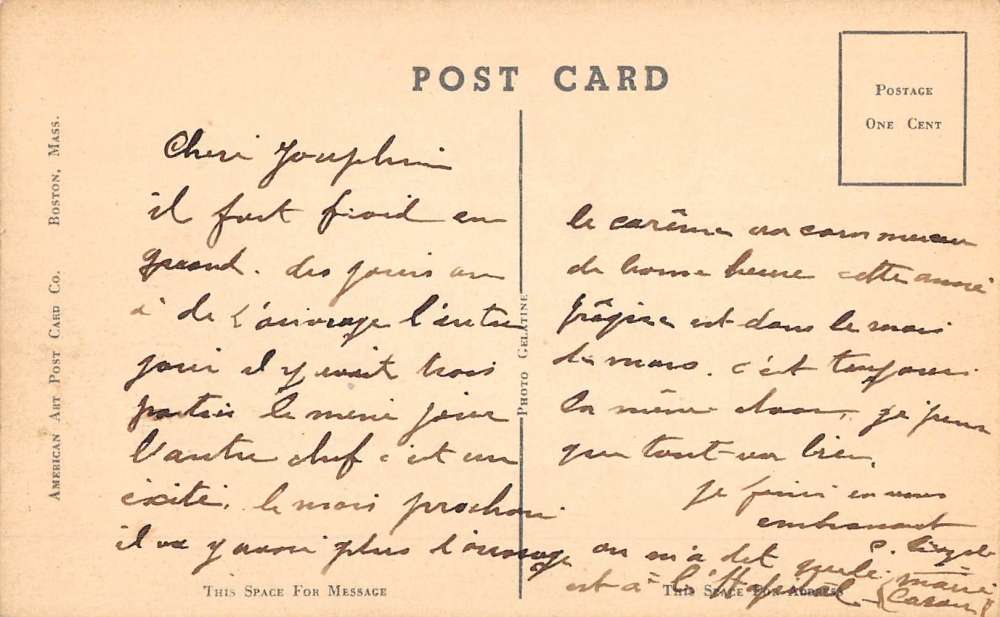 POST CARD
POSTAGE
ONE CENT
AMERICAN ART POST CARD CO. BOSTON, MASS.
PHOTO GELATINE
il fait froid en
grand. des jours on
a de l'ouvrage l'autre
jour il y avait trois
parties le meme jour
l'autre chef c'est un
le mois prochain
il va y avoir plus l'ouvrage
le carême va commencer
de bonne heure cette année
est dans le mois
de mars. c'est toujours
la même chose, je pense
que tout va bien.
je finis en vous
embrassant
on m'a dit que le maire
est à l'Hopital (Caron)
THIS SPACE FOR MESSAGE
THIS SPACE FOR ADDRESS